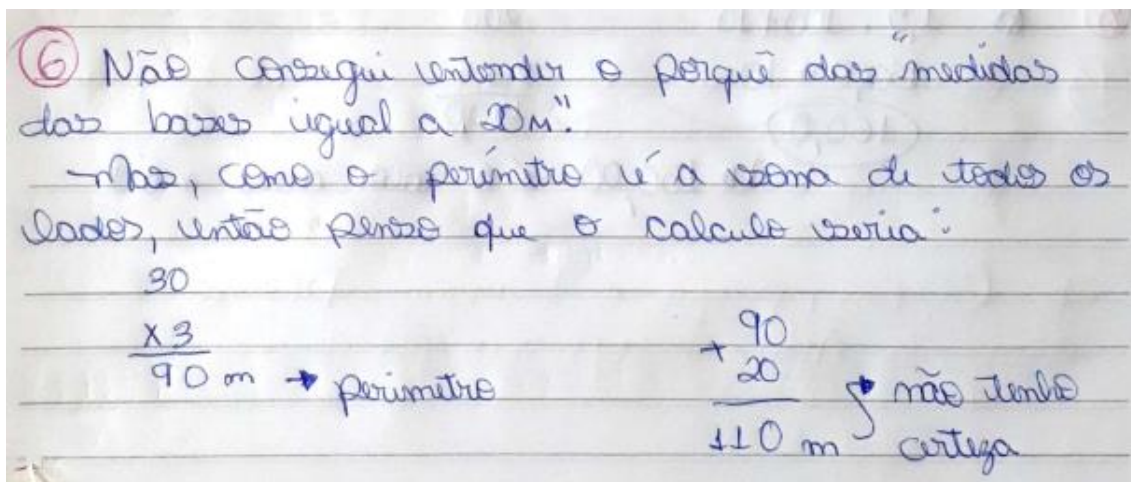 6 Não consegui entender o porquê das "medidas
das bases igual a 20m".
Mas, como o perímitro é a soma de todos os
lados, então penso que o calculo seria:
30
x 3
90 m → perimetro
+ 90
20
110 m → não tenho
certeza